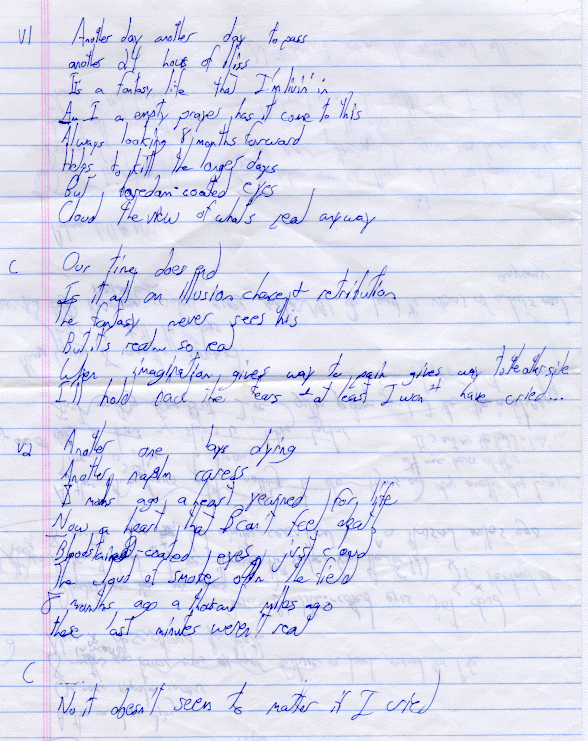 V1 Another day another day to pass
another 24 hours of bliss
It's a fantasy life that I'm livin' in
Am I a empty prayer, has it come to this
Always looking 8 months forward
Helps to kill the longer days
But boredom-coated eyes
Cloud the view of what's real anyway
C Our time does end
Is it all an illusion retribution
The fantasy never sees this
But it's realm so real
When imagination gives way to pain gives way to the other side
I'll hold back the tears + at least I won't have cried...
V2 Another one lays dying
Another napalm caress
8 months ago a heart yearned for life
Now a heart that can't feel
Bloodstained-coated eyes just cloud
The cloud of smoke off the field
8 months ago a thousand miles ago
these last minutes weren't real
C .....
No it doesn't seem to matter if I cried